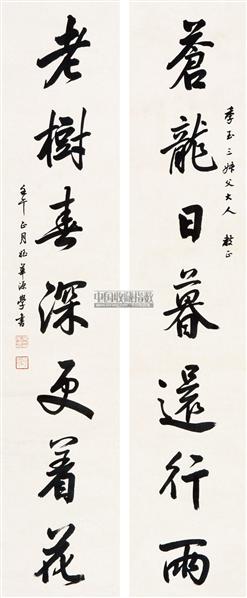 季玉三姊父大人 教正
蒼龍日暮還行雨
老樹春深更着花
壬午正月姪華源學書
中国收藏指数